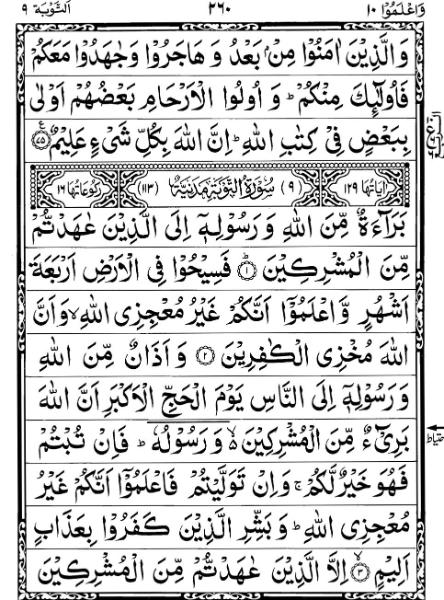 وَاعْلَمُوْۤا ١٠ ٢٦٠ اَلتَّوْبَة ٩
وَالَّذِيْنَ اٰمَنُوْا مِنْۢ بَعْدُ وَ هَاجَرُوْا وَجٰهَدُوْا مَعَكُمْ
فَاُولٰٓئِكَ مِنْكُمْ ؕ وَ اُولُوا الْاَرْحَامِ بَعْضُهُمْ اَوْلٰى
بِبَعْضٍ فِيْ كِتٰبِ اللّٰهِ ؕ اِنَّ اللّٰهَ بِكُلِّ شَيْءٍ عَلِيْمٌ ﴿٧٥﴾
اٰيَاتُهَا ١٢٩ (٩) سُوْرَةُ التَّوْبَةِ مَدَنِيَّةٌ (١١٣) رُكُوْعَاتُهَا ١٦
بَرَآءَةٌ مِّنَ اللّٰهِ وَ رَسُوْلِهٖۤ اِلَى الَّذِيْنَ عٰهَدْتُّمْ
مِّنَ الْمُشْرِكِيْنَ ؕ﴿١﴾ فَسِيْحُوْا فِي الْاَرْضِ اَرْبَعَةَ
اَشْهُرٍ وَّاعْلَمُوْۤا اَنَّكُمْ غَيْرُ مُعْجِزِي اللّٰهِ ۙ وَاَنَّ
اللّٰهَ مُخْزِي الْكٰفِرِيْنَ ﴿٢﴾ وَ اَذَانٌ مِّنَ اللّٰهِ
وَ رَسُوْلِهٖۤ اِلَى النَّاسِ يَوْمَ الْحَجِّ الْاَكْبَرِ اَنَّ اللّٰهَ
بَرِيْٓءٌ مِّنَ الْمُشْرِكِيْنَ ۙ۬ وَ رَسُوْلُهٗ ؕ فَاِنْ تُبْتُمْ
فَهُوَ خَيْرٌ لَّكُمْ ۚ وَاِنْ تَوَلَّيْتُمْ فَاعْلَمُوْۤا اَنَّكُمْ غَيْرُ
مُعْجِزِي اللّٰهِ ؕ وَ بَشِّرِ الَّذِيْنَ كَفَرُوْا بِعَذَابٍ
اَلِيْمٍ ۙ﴿٣﴾ اِلَّا الَّذِيْنَ عٰهَدْتُّمْ مِّنَ الْمُشْرِكِيْنَ